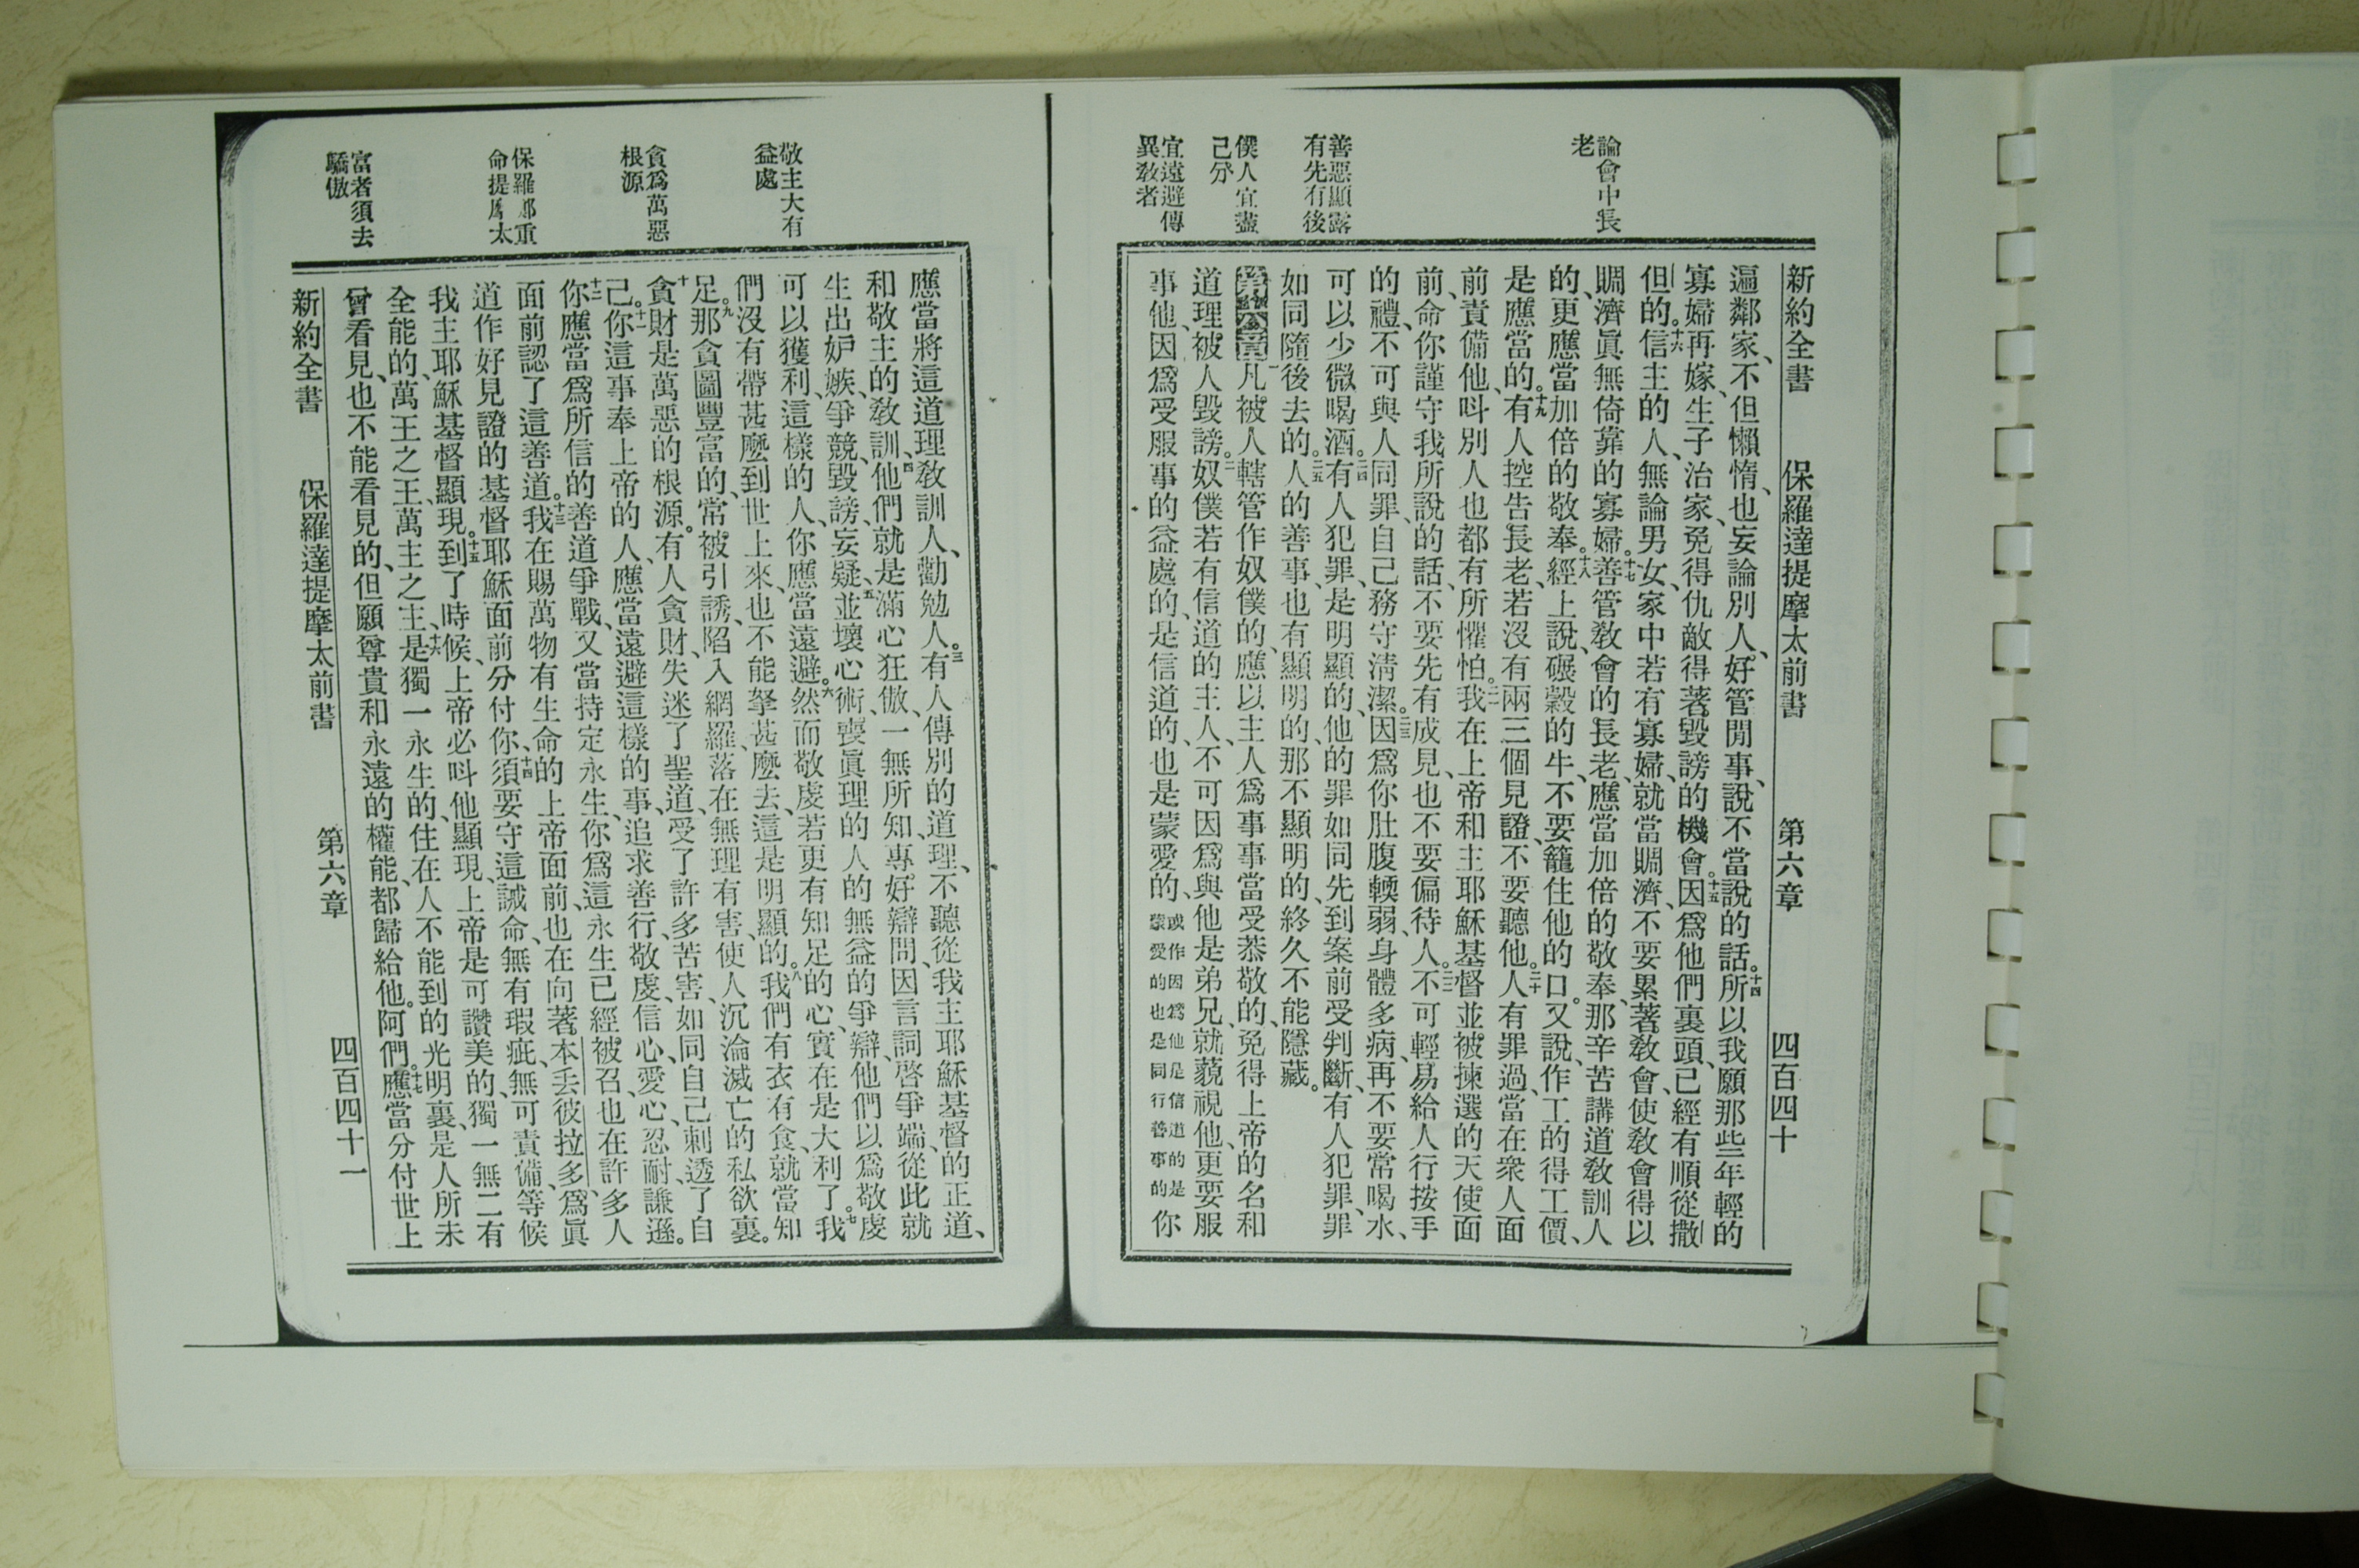 論會中長
老
善惡顯露
有先有後
僕人宜盡
己分
宜遠避傳
異敎者
新約全書 保羅達提摩太前書 第六章 四百四十
遍鄰家、不但懶惰、也妄論別人、好管閒事、說不當說的話。十四所以我願那些年輕的
寡婦再嫁、生子治家、免得仇敵得著毀謗的機會。十五因爲他們裏頭、已經有順從撒
但的。十六信主的人、無論男女、家中若有寡婦、就當賙濟、不要累著敎會、使敎會得以
賙濟眞無倚靠的寡婦。十七善管敎會的長老、應當加倍的敬奉、那辛苦講道敎訓人
的、更應當加倍的敬奉。十八經上說、碾穀的牛、不要籠住他的口。又說、作工的得工價、
是應當的。十九有人控吿長老、若沒有兩三個見證、不要聽他。二十人有罪過、當在衆人面
前責備他、呌別人也都有所懼怕。二一我在上帝和主耶穌基督並被揀選的天使面
前、命你謹守我所說的話、不要先有成見、也不要偏待人。二二不可輕易給人行按手
的禮、不可與人同罪、自己務守淸潔。二三因爲你肚腹輭弱、身體多病、再不要常喝水、
可以少微喝酒。二四有人犯罪、是明顯的、他的罪如同先到案前受判斷、有人犯罪、罪
如同隨後去的。二五人的善事、也有顯明的、那不顯明的、終久不能隱藏。
第六章一凡被人轄管作奴僕的、應以主人爲事事當受恭敬的、免得上帝的名和
道理被人毀謗。二奴僕若有信道的主人、不可因爲與他是弟兄、就藐視他、更要服
事他、因爲受服事的益處的、是信道的、也是蒙愛的、或作因爲他是信道的是蒙愛的也是同行善事的你
敬主大有
益處
貪爲萬惡
根源
保羅鄭重
命提摩太
富者須去
驕傲
應當將這道理敎訓人、勸勉人。三有人傳別的道理、不聽從我主耶穌基督的正道、
和敬主的敎訓、四他們就是滿心狂傲、一無所知、專好辯問、因言詞啓爭端、從此就
生出妒嫉、爭競、毀謗、妄疑、五並壞心術、喪眞理的人的無益的爭辯、他們以爲敬虔
可以獲利、這樣的人、你應當遠避。六然而敬虔、若更有知足的心、實在是大利了。七我
們沒有帶甚麼到世上來、也不能拏甚麼去、這是明顯的。八我們有衣有食、就當知
足。九那貪圖豐富的、常被引誘、陷入網羅、落在無理有害、使人沉淪滅亡的私欲裏。
十貪財是萬惡的根源。有人貪財、失迷了聖道、受了許多苦害、如同自己刺透了自
己。十一你這事奉上帝的人、應當遠避這樣的事、追求善行、敬虔、信心、愛心、忍耐、謙遜。
十二你應當爲所信的善道爭戰、又當持定永生、你爲這永生已經被召、也在許多人
面前認了這善道。十三我在賜萬物有生命的上帝面前、也在向著本丟彼拉多、爲眞
道作好見證的基督耶穌面前分付你、十四須要守這誡命、無有瑕疵、無可責備、等候
我主耶穌基督顯現。十五到了時候、上帝必呌他顯現、上帝是可讚美的、獨一無二有
全能的、萬王之王、萬主之主、十六是獨一永生的、住在人不能到的光明裏、是人所未
曾看見、也不能看見的、但願尊貴和永遠的權能、都歸給他。阿們。十七應當分付世上
新約全書 保羅達提摩太前書 第六章 四百四十一